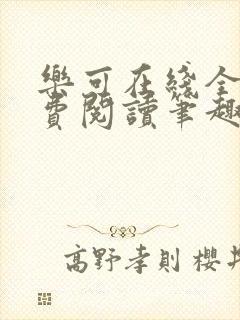 樂可在綫全
費閱讀筆趣
高野孝則 櫻井